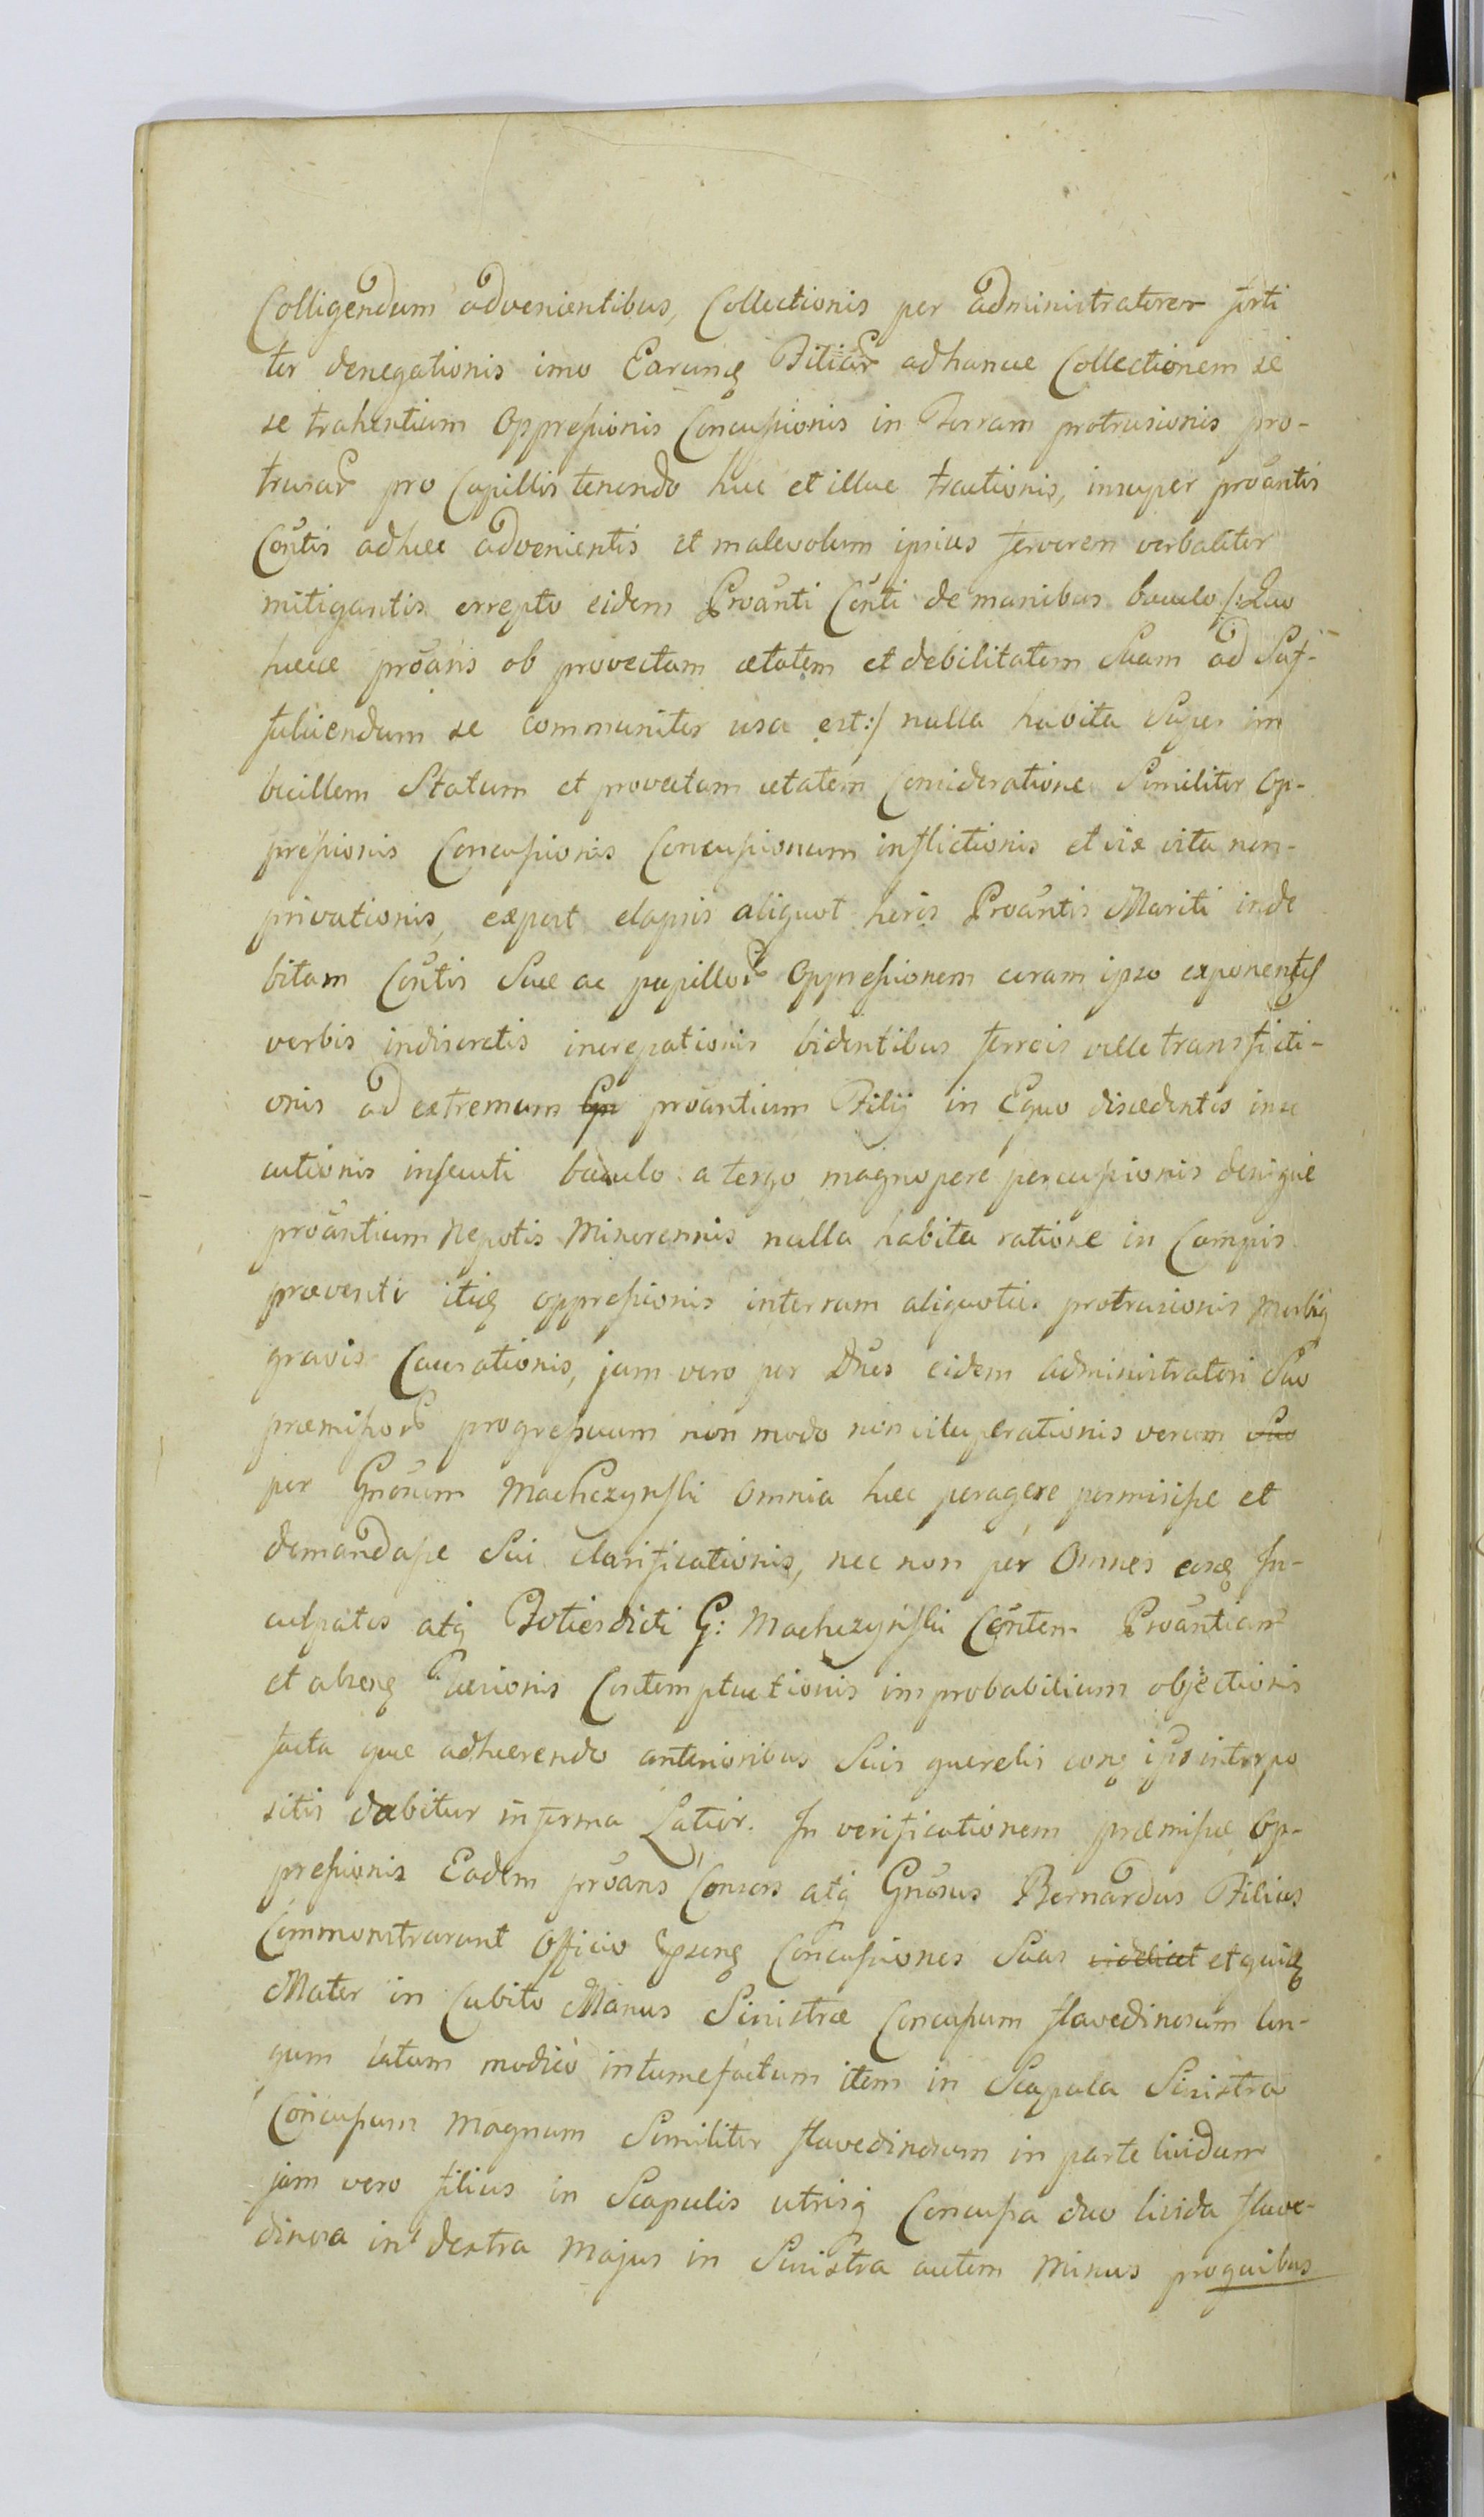 Colligendum advenientibus, Collectionis per administratorem forti
ter denegationis imo Earumq Filiar adhancce Collectionem se
se trahentium Oppressionis Concussionis in Terram protrusionis pro-
trusar pro Capillis tenendo huc et illuc tractionis, insuper proantis
Contis adhuc advenientis et malevolum ipsius fervorem verbaliter
mitigantis errepto eidem Proanti Conti de manibus baculo /:Quo
haecce proans ob provectam aetatem et debilitatem Suam ad Suf-
fulciendum se communiter usa est:/ nulla habita Super im
bicillem Statum et provectam aetatem Consideratione Similiter Op-
pressionis Concussionis Concussionum inflictionis et vix vita non-
privationis, expost elapsis aliquot horis Proantis Mariti inde
bitam Contis Suae ac pupillor Oppressionem coram ipso exponentis
verbis indiscretis increpationis bidentibus ferreis velle transficti-
onis ad extremum proantium Filij in Equo discedentis inse
cutionis insecuti baculo a tergo magnopere percussionis denique
proantium Nepotis Minorennis nulla habita ratione in Campis
praeventi itidq oppressionis interram aliquoties protrusionis Morbiq
gravis Causationis, jam vero per Dnos eidem administratori Suo
praemissor progressuum non modo non vituperationis verum Suo
per Gnosum Machczynski Omnia haec peragere permisisse et
demandasse Sui clarificationis, nec non per Omnes eosq In-
culpatos atq Totiesdicti G: Machczynski Contem Proantiam
et absenq Contemptuationis improbabilium objectionis
facta quae adhaerendo anterioribus Suis querelis conq ipso interpo
sitis dabitur in forma Latior. In verificationem praemissae Op-
pressionis Eadem proans Consors atq Gnosus Bernardus Filius
Commonstrarunt Officio Concussiones Suas videlicet et quidq
Mater in Cubito Manus Sinistrae Concussum flavedinosum lon-
gum latum modico intumefactum item in Scapula Sinistra
Concussum Magnum Similiter flavedinosum in parte lividum
jam vero filius in Scapulis utrisq Concussa duo livida flave-
dinosa in dextra Majus in Sinistra autem Minus proquibus